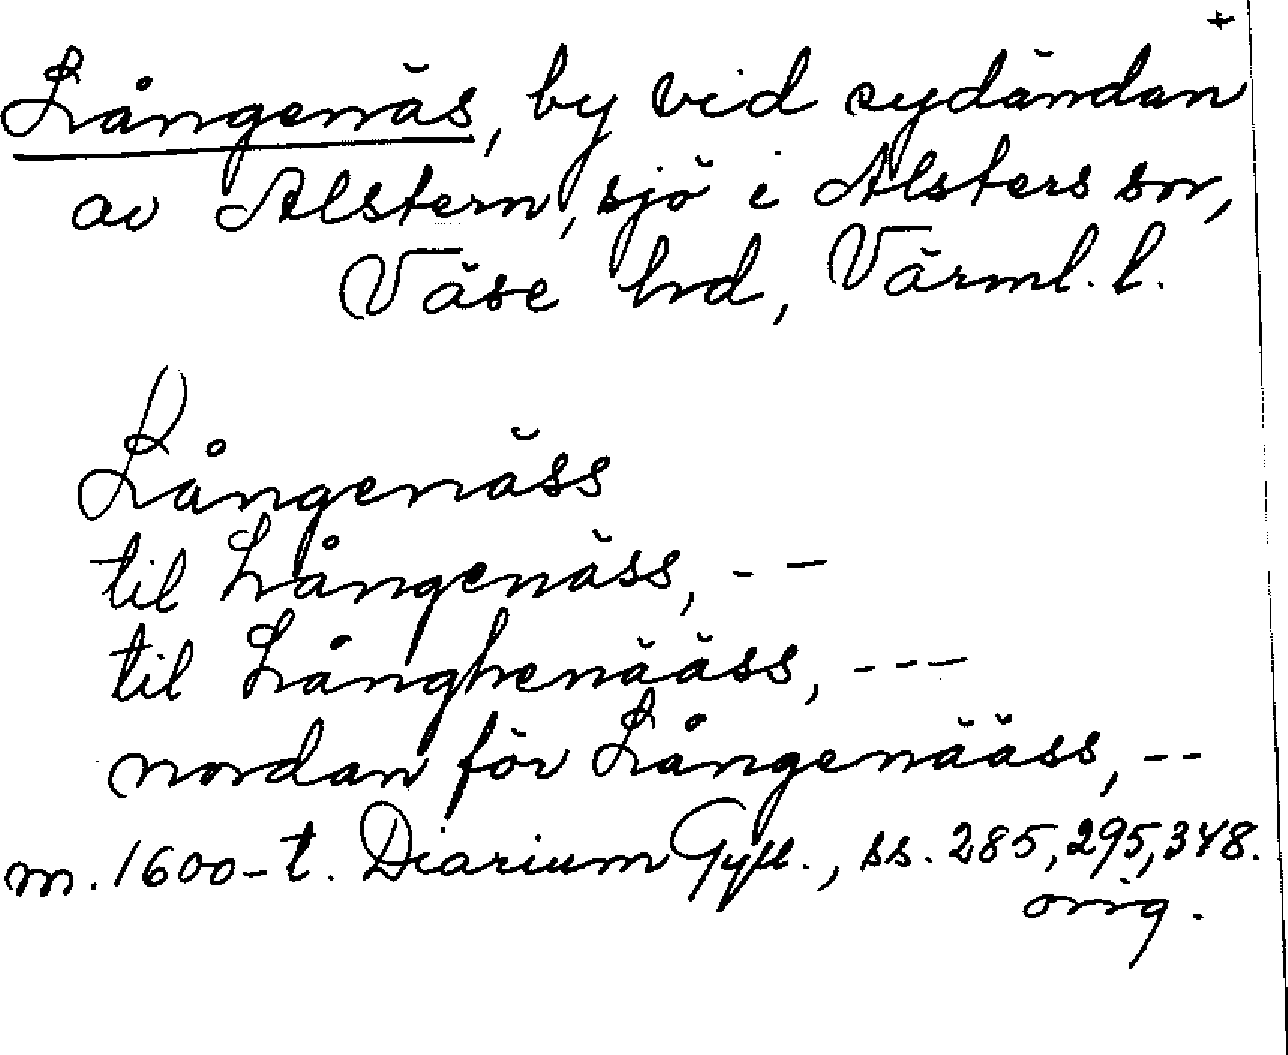 +
Långenäs, by vid sydändan
av Alstern, sjö i Alsters sn,
Väse hd, Värml. l.
Långenäss
til Långenäss, - -
til Långhenääss, - - -
nordan för Långenääss, - -
m. 1600-t. Diarium Gyll., ss. 285, 295, 348.
orig.